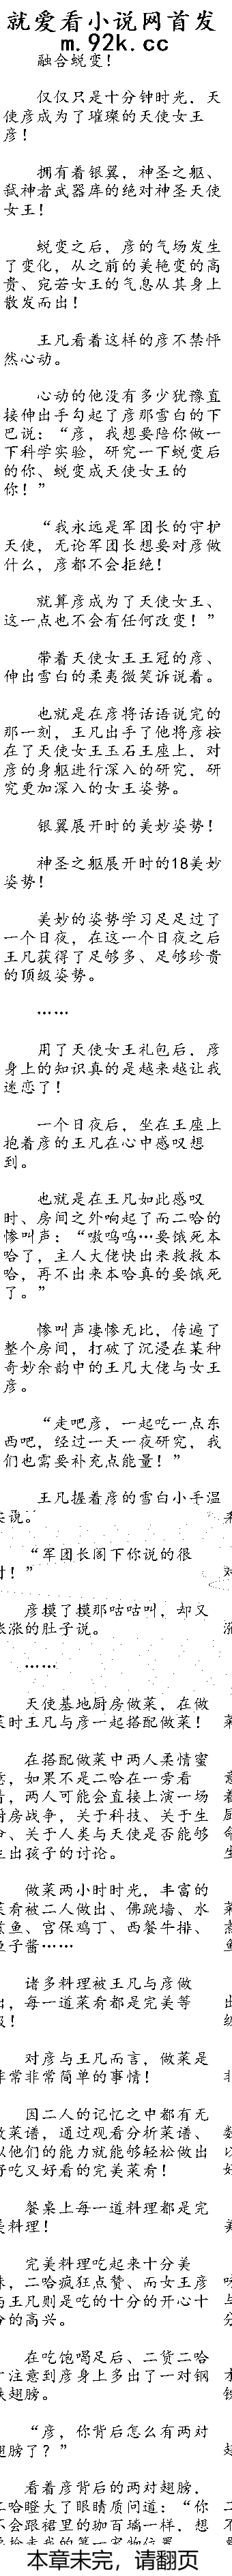 就爱看小说网首发
m.92k.cc
融合蜕变！
仅仅只是十分钟时光，天
使彦成为了璀璨的天使女王
彦！
拥有着银翼，神圣之躯、
弑神者武器库的绝对神圣天使
女王！
蜕变之后，彦的气场发生
了变化，从之前的美艳变的高
贵、宛若女王的气息从其身上
散发而出！
王凡看着这样的彦不禁怦
然心动。
心动的他没有多少犹豫直
接伸出手勾起了彦那雪白的下
巴说：“彦，我想要陪你做一
下科学实验，研究一下蜕变后
的你、蜕变成天使女王的
你！”
“我永远是军团长的守护
天使，无论军团长想要对彦做
什么，彦都不会拒绝！
就算彦成为了天使女王、
这一点也不会有任何改变！”
带着天使女王王冠的彦、
伸出雪白的柔荑微笑诉说着。
也就是在彦将话语说完的
那一刻，王凡出手了他将彦按
在了天使女王玉石王座上，对
彦的身躯进行深入的研究，研
究更加深入的女王姿势。
银翼展开时的美妙姿势！
神圣之躯展开时的18美妙
姿势！
美妙的姿势学习足足过了
一个日夜，在这一个日夜之后
王凡获得了足够多、足够珍贵
的顶级姿势。
……
用了天使女王礼包后，彦
身上的知识真的是越来越让我
迷恋了！
一个日夜后，坐在王座上
抱着彦的王凡在心中感叹想
到。
也就是在王凡如此感叹
时、房间之外响起了而二哈的
惨叫声：“嗷呜呜…要饿死本
哈了，主人大佬快出来救救本
哈，再不出来本哈真的要饿死
了。”
惨叫声凄惨无比，传遍了
整个房间，打破了沉浸在某种
奇妙余韵中的王凡大佬与女王
彦。
“走吧彦，一起吃一点东
西吧，经过一天一夜研究，我
们也需要补充点能量！”
王凡握着彦的雪白小手温
说。
“军团长阁下你说的很
对！”
彦摸了摸那咕咕叫，却又
涨涨的肚子说。
……
天使基地厨房做菜，在做
菜时王凡与彦一起搭配做菜！
在搭配做菜中两人柔情蜜
意，如果不是二哈在一旁看
着，两人可能会直接上演一场
厨房战争，关于科技、关于生
命、关于人类与天使是否能够
生出孩子的讨论。
做菜两小时时光，丰富的
菜肴被二人做出、佛跳墙、水
煮鱼、宫保鸡丁、西餐牛排、
鱼子酱……
诸多料理被王凡与彦做
出，每一道菜肴都是完美等
级！
对彦与王凡而言，做菜是
非常非常简单的事情！
因二人的记忆之中都有无
数菜谱，通过观看分析菜谱、
以他们的能力就能够轻松做出
好吃又好看的完美菜肴！
餐桌上每一道料理都是完
美料理！
完美料理吃起来十分美
味，二哈疯狂点赞、而女王彦
与王凡则是吃的十分的开心十
分的高兴。
在吃饱喝足后、二货二哈
才注意到彦身上多出了一对钢
铁翅膀。
“彦，你背后怎么有两对
翅膀了？”
看着彦背后的两对翅膀，
二哈瞪大了眼睛质问道：“你
不会跟裙里的珈百璃一样，想
本章未完，请翻页